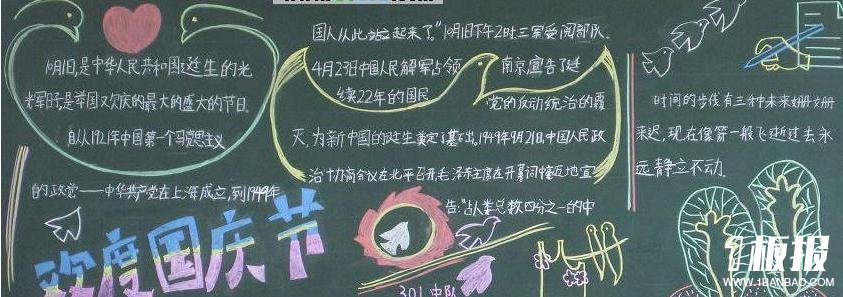 10月1日,是中华人民共和国诞生的光
辉日子,是举国又欢庆的最大的盛大的节日.
自从1921年中国第一个马克思主义
的政党——中华共产党在上海成立,到1949年
4月23日中国人民解军占领
南京,宣告了延
续22年的国民
党的反动统治的覆
灭,为新中国的诞生奠定了基础,1949年9月21日,中国人民政
治协商会议在北平召开,毛泽东主席在开幕词中,
告:"占人类总数四分之一的中
国人从此站立起来了."10月1日下午2时三军受阅部队.
时间的步伐有三种未来姗姗
来迟,现在像箭一般飞逝过去永
远静立不动.
欢度国庆节
301中队
板报
WWW.1BANBAO.COM